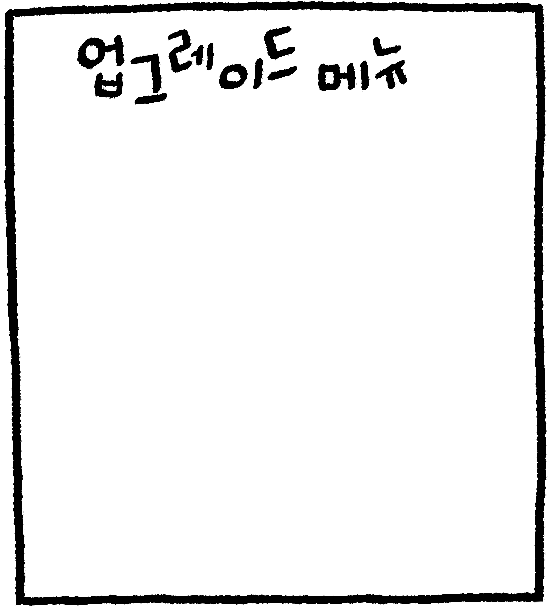 업그레이드 메뉴